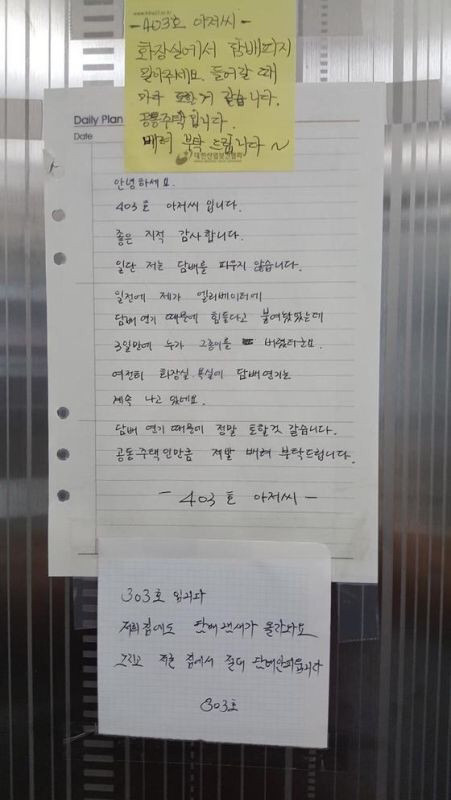 -403호 아저씨-
화장실에서 담배피지
말아주세요. 들어갈 때
마다 토할거 같습니다.
공동주택입니다.
배려 부탁 드립니다~
대한산업보건협회
Daily Plan
Date
안녕하세요.
403호 아저씨 입니다.
좋은 지적 감사합니다.
일단 저는 담배를 피우지 않습니다.
일전에 제가 엘리베이터에
담배 연기 때문에 힘들다고 붙여놨었는데
3일만에 누가 그종이를 버렸더군요.
여전히 화장실.욕실이 담배연기는
계속 나고 있네요.
담배 연기 때문에 정말 토할것 같습니다.
공동주택인만큼 제발 배려 부탁드립니다.
- 403호 아저씨 -
303호 입니다
저희집에도 담배냄새가 올라와요
그리고 저흰 집에서 절대 담배안피웁니다
303호